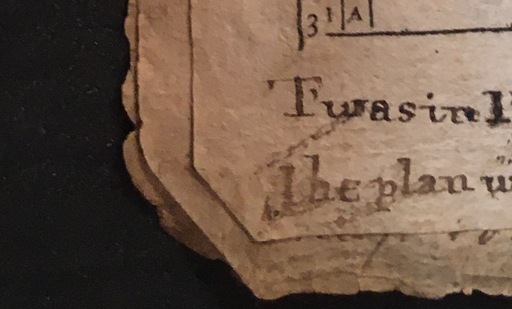 31 A
Twas in
The plan